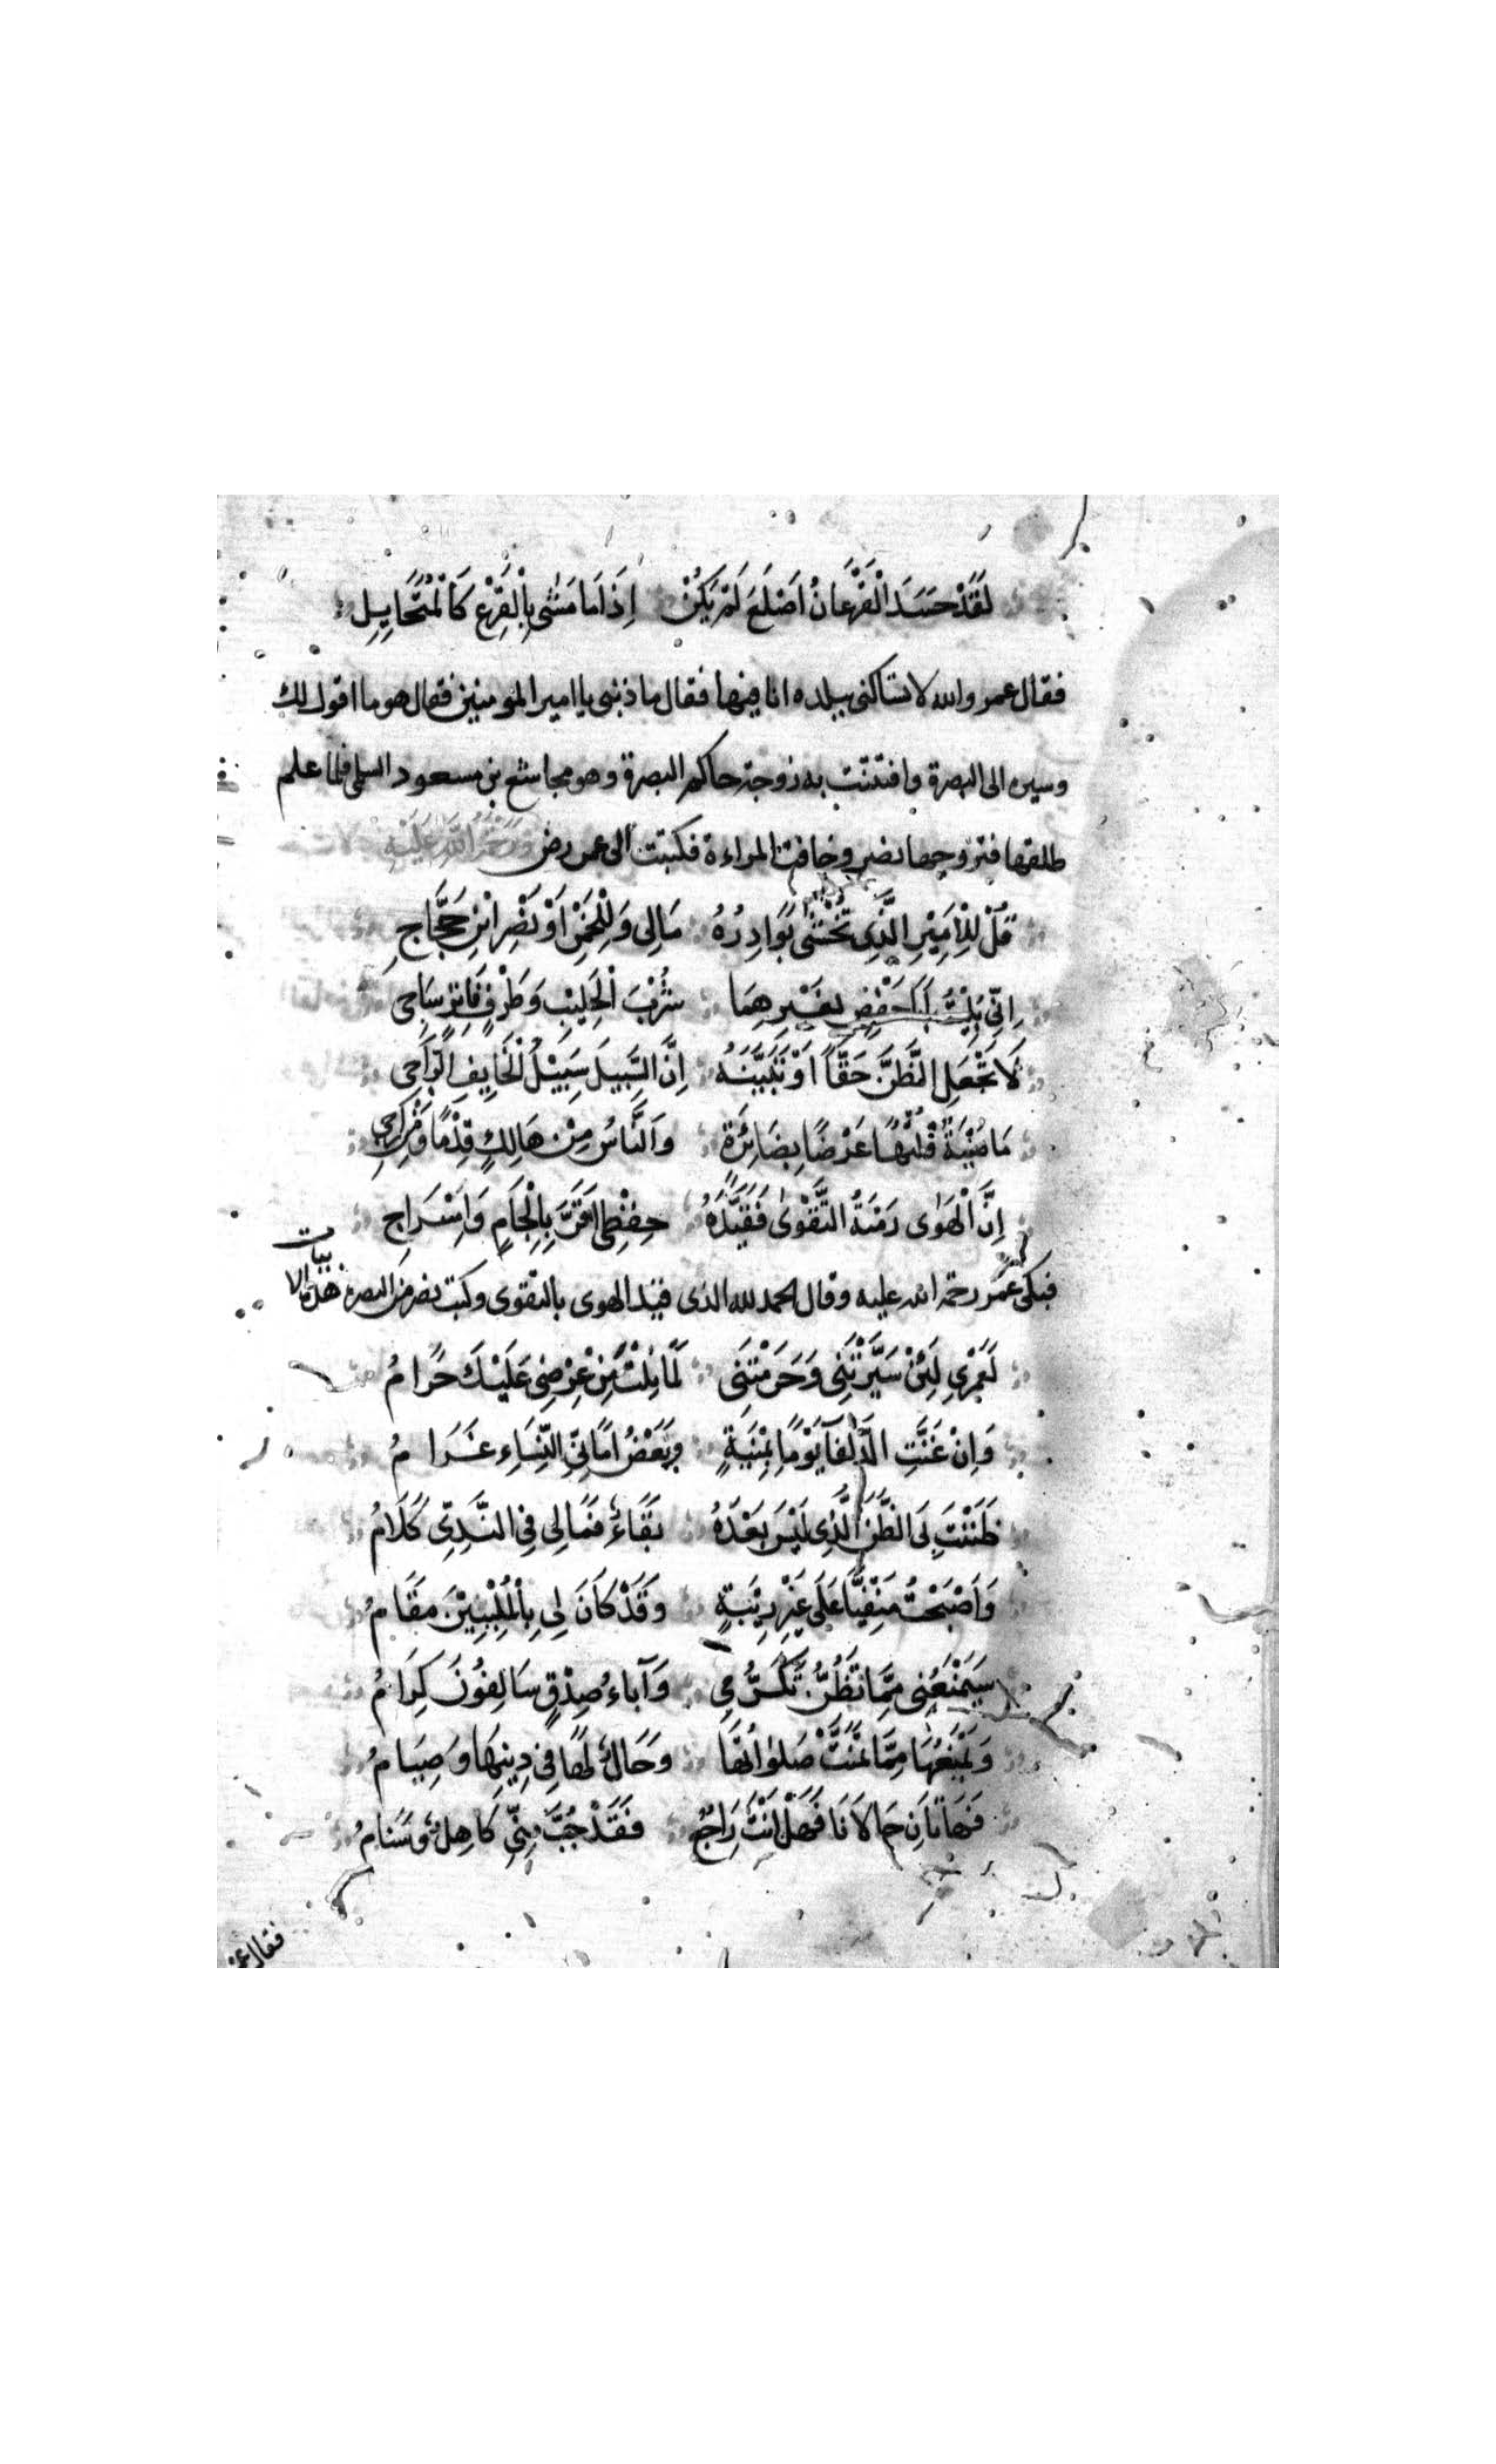 لَقَدْ حَسَدَ الْفَرْعَانُ اَصْلَعَ لَمْ يَكُنْ اِذَا مَا مَشٰى بِالْفَرْعِ كَالْمُتَخَايِلِ
فقال عمر والله لا تساكنى ببلده انا فيها فقال ما ذنبى يا امير المومنين فقال هو ما اقول لك
وسيره الى البصرة وافتتنت به زوجة حاكم البصرة وهو مجاشع بن مسعود السلمى فلما علم
طلقها فتزوجها نصر وخافت المراءة فكتبت الى عمر رض
قُلْ لِلْاَمِيْرِ الَّذِى تُخْشٰى بَوَادِرُهُ مَالِى وَلِلْخَمْرِ اَوْ نَصْرِ ابْنِ حَجَّاجِ
اِنِّى بَلِيْتُ اَبَا حَفْصٍ بِغَيْرِهِمَا شُرْبَ الْحَلِيْبِ وَطَرْفٍ فَاتِرٍ سَاجِى
لَا تَجْعَلِ الظَّنَّ حَقًّا اَوْ تَبَيَّنَهُ اِنَّ السَّبِيلَ سَبِيْلُ الْخَايِفِ الرَّاجِى
مَا مُنْيَةٌ قُلْتُهَا عَرْضًا بِضَائِرَةٍ وَالنَّاسُ مِنْ هَالِكٍ قِدْمًا وَمِنْ نَاجِى
اِنَّ الْهَوٰى رَمْيَةُ التَّقْوٰى فَقَيَّدَهُ حِفْظِى اَقَرَّ بِاِلْجَامٍ وَاِسْرَاجِ
فبكى عمر رحمة الله عليه وقال الحمد لله الذى قيد الهوى بالتقوى وكتب نصر من البصرة هذه الابيات
لَعَمْرِى لَئِنْ سَيَّرْتَنِى وَحَرَمْتَنِى لَمَا نِلْتَ مِنْ عِرْضِى عَلَيْكَ حَرَامُ
وَاِنْ غَنَّتِ الذَّلْفَا يَوْمًا بِمُنْيَةٍ وَبَعْضُ اَمَانِىِّ النِّسَاءِ غَرَامُ
ظَنَنْتَ بِىَ الظَّنَّ الَّذِى لَيْسَ بَعْدَهُ بَقَاءٌ فَمَا لِى فِى النَّدِىِّ كَلَامُ
وَاَصْبَحْتُ مَنْفِيًّا عَلَى غَيْرِ رِيْبَةٍ وَقَدْ كَانَ لِى بِالْمُلْبِيْنَ مَقَامُ
سَيَمْنَعُنِى مِمَّا تَظُنُّ تَكَرُّمِى وَآبَاءُ صِدْقٍ سَالِفُونَ كِرَامُ
وَيَمْنَعُهَا مِمَّا تَمَنَّتْ صَلوٰاتُهَا وَحَالٌ لَهَا فِى دِينِهَا وَصِيَامُ
فَهَاتَانِ حَالَانَا فَهَلْ اَنْتَ رَاجِعٌ فَقَدْ جُبَّ مِنِّى كَاهِلٌ وَسَنَامُ